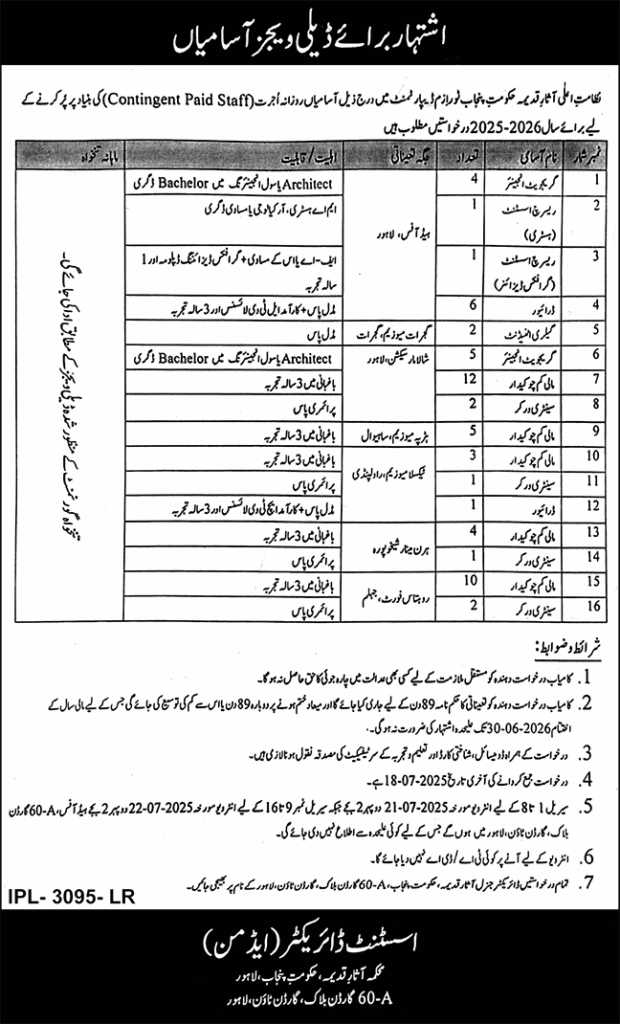 اشتہار برائے ڈیلی ویجز آسامیاں
نظامتِ اعلٰی آثارِ قدیمہ حکومتِ پنجاب ٹورازم ڈیپارٹمنٹ میں درج ذیل آسامیاں روزانہ اُجرت (Contingent Paid Staff) کی بنیاد پر پُر کرنے کے
لیے برائے سال 2026-2025 درخواستیں مطلوب ہیں
نمبر شمار نام آسامی تعداد جگہ تعیناتی اہلیت/قابلیت ماہانہ تنخواہ
1 گریجویٹ انجینئر 4 ہیڈ آفس، لاہور Architect یا سول انجینئرنگ میں Bachelor ڈگری
2 ریسرچ اسسٹنٹ (ہسٹری) 1 ایم اے ہسٹری، آرکیالوجی یا مساوی ڈگری
3 ریسرچ اسسٹنٹ (گرافکس ڈیزائنر) 1 ایف-اے یا اس کے مساوی + گرافکس ڈیزائننگ ڈپلومہ اور 1 سالہ تجربہ
4 ڈرائیور 6 مڈل پاس + کارآمد ایل ٹی وی لائسنس اور 3 سالہ تجربہ
5 گیلری اٹینڈنٹ 2 گجرات میوزیم، گجرات مڈل پاس
6 گریجویٹ انجینئر 5 شالامار سیکشن، لاہور Architect یا سول انجینئرنگ میں Bachelor ڈگری
7 مالی کم چوکیدار 12 باغبانی میں 3 سالہ تجربہ
8 سینٹری ورکر 2 پرائمری پاس
9 مالی کم چوکیدار 5 ہڑپہ میوزیم، ساہیوال باغبانی میں 3 سالہ تجربہ
10 مالی کم چوکیدار 3 ٹیکسلا میوزیم، راولپنڈی باغبانی میں 3 سالہ تجربہ
11 سینٹری ورکر 1 پرائمری پاس
12 ڈرائیور 1 مڈل پاس + کارآمد ایچ ٹی وی لائسنس اور 3 سالہ تجربہ
13 مالی کم چوکیدار 4 ہرن مینار شیخوپورہ باغبانی میں 3 سالہ تجربہ
14 سینٹری ورکر 1 پرائمری پاس
15 مالی کم چوکیدار 10 روہتاس فورٹ، جہلم باغبانی میں 3 سالہ تجربہ
16 سینٹری ورکر 2 پرائمری پاس
تنخواہ گورنمنٹ کے منظور شدہ ڈیلی ویجز کے مطابق ادا کی جائے گی۔
شرائط و ضوابط:
1. کامیاب درخواست دہندہ کو مستقل ملازمت کے لیے کسی بھی عدالت میں چارہ جوئی کا حق حاصل نہ ہوگا۔
2. کامیاب درخواست دہندہ کو تعیناتی کا حکم نامہ 89 دن کے لیے جاری کیا جائے گا اور میعاد ختم ہونے پر دوبارہ 89 دن یا اس سے کم کی توسیع کی جائے گی جس کے لیے مالی سال کے
اختتام 30-06-2026 تک علیحدہ اشتہار کی ضرورت نہ ہوگی۔
3. درخواست کے ہمراہ ڈومیسائل، شناختی کارڈ اور تعلیم و تجربہ کے سرٹیفکیٹ کی مصدقہ نقول ہونا لازمی ہیں۔
4. درخواست جمع کروانے کی آخری تاریخ 18-07-2025 ہے۔
5. سیریل 1 تا 8 کے لیے انٹرویو مورخہ 21-07-2025 دوپہر 2 بجے جبکہ سیریل نمبر 9 تا 16 کے لیے انٹرویو مورخہ 22-07-2025 دوپہر 2 بجے ہیڈ آفس، 60-A گارڈن
بلاک، گارڈن ٹاؤن، لاہور میں ہوں گے جس کے لیے کوئی علیحدہ سے اطلاع نہیں دی جائے گی۔
6. انٹرویو کے لیے آنے پر کوئی ٹی اے/ڈی اے نہیں دیا جائے گا۔
7. تمام درخواستیں ڈائریکٹر جنرل آثار قدیمہ، حکومت پنجاب، 60-A گارڈن بلاک، گارڈن ٹاؤن، لاہور کے نام پر بھیجی جائیں۔
IPL- 3095- LR
اسسٹنٹ ڈائریکٹر (ایڈمن)
محکمہ آثارِ قدیمہ، حکومتِ پنجاب، لاہور
60-A گارڈن بلاک، گارڈن ٹاؤن، لاہور